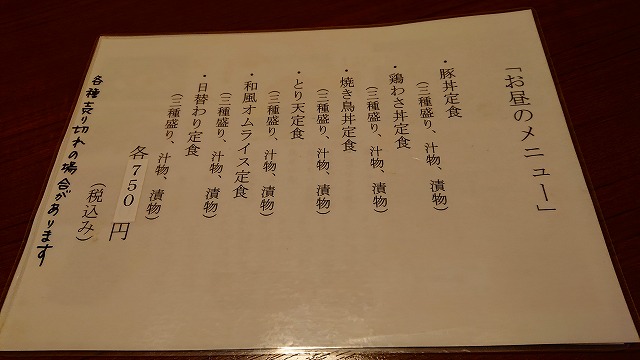 「お昼のメニュー」
・豚丼定食
（三種盛り、汁物、漬物）
・鶏わさ丼定食
（三種盛り、汁物、漬物）
・焼き鳥丼定食
（三種盛り、汁物、漬物）
・とり天定食
（三種盛り、汁物、漬物）
・和風オムライス定食
（三種盛り、汁物、漬物）
・日替わり定食
（三種盛り、汁物、漬物）
各750円
（税込み）
各種売り切れの場合があります